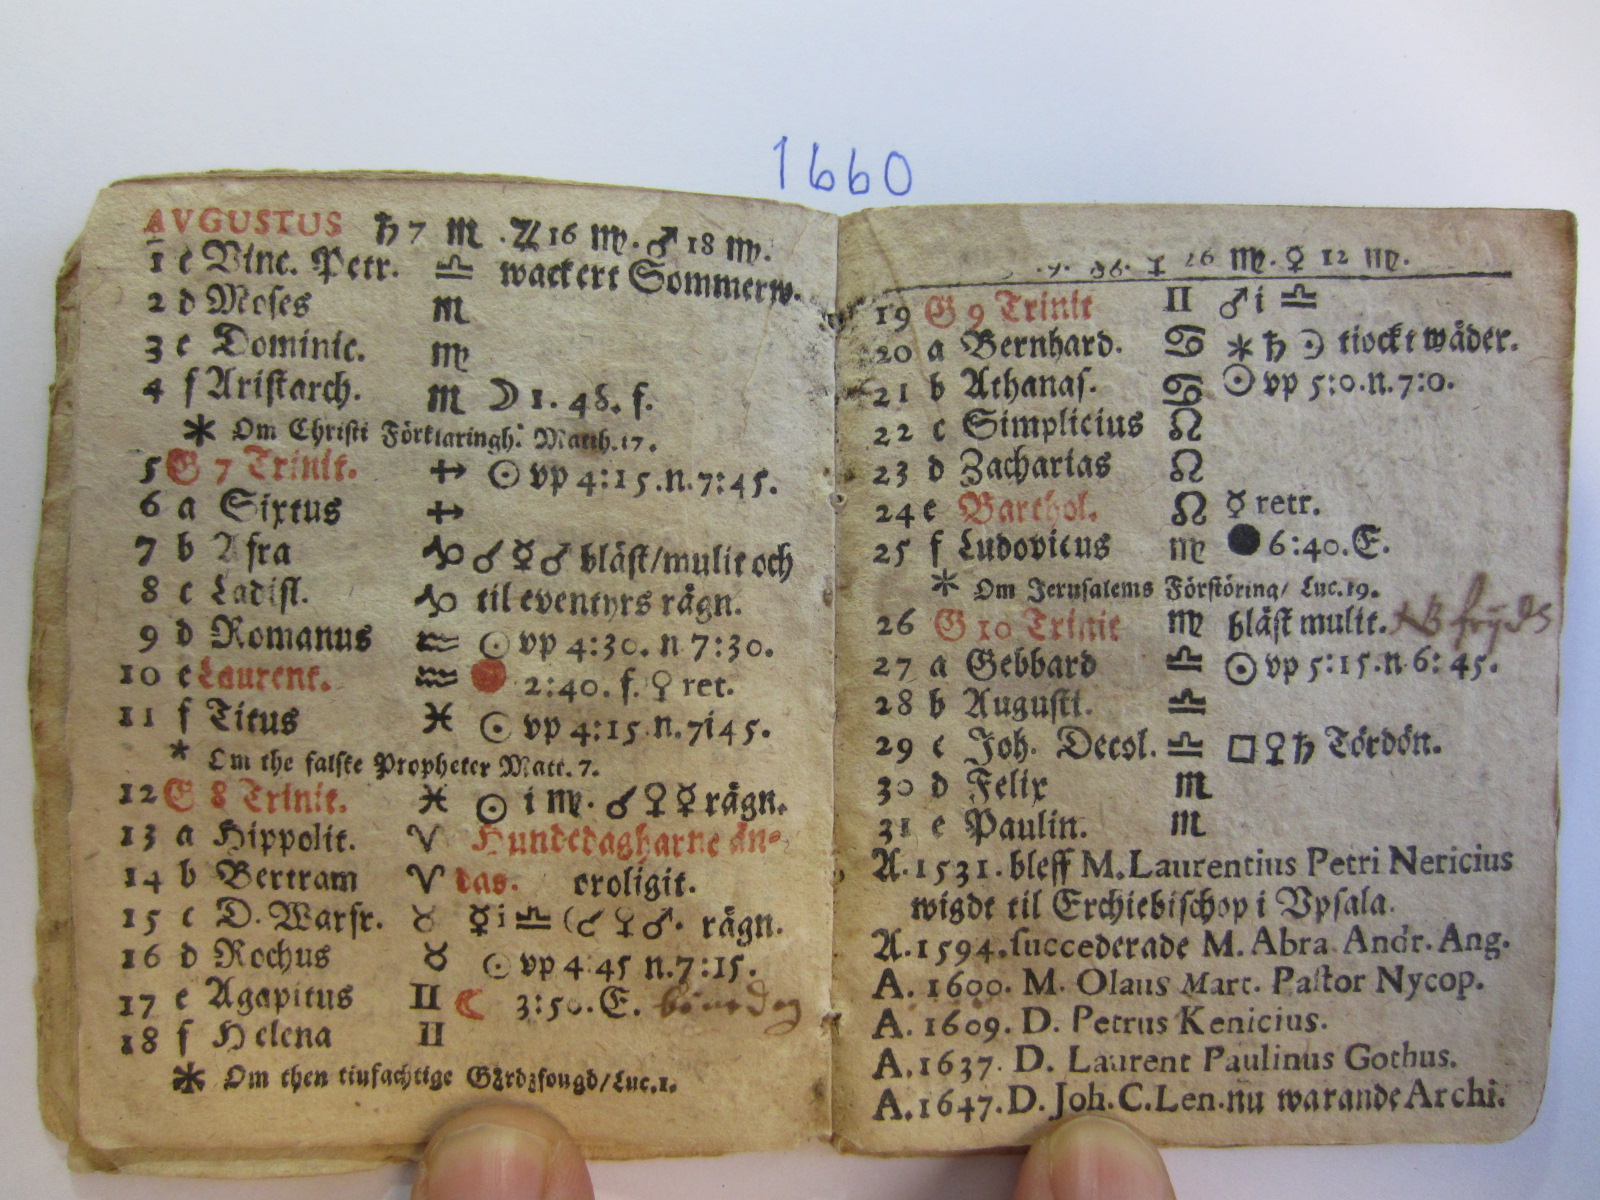 1660
AVGUSTUS ♄ 7 ♏. ♃ 16 ♍. ♂ 18 ♍.
1 c Vinc. Petr. ♎ wackert Sommerw.
2 d Moses ♏
3 e Dominic. ♍
4 f Aristarch. ♏ ☽ 1. 48. f.
* Om Christi Förklaringh. Matth. 17.
5 G 7 Trinit. ♐ ☉ vp 4:15. n. 7:45.
6 a Sixtus ♐
7 b Afra ♑ ☌ ☿ ♂ blåst/mulit och
8 c Ladisl. ♑ til eventyrs rägn.
9 d Romanus ♒ ☉ vp 4:30. n 7:30.
10 e Laurent. ♒ 2:40. f. ♀ ret.
11 f Titus ♓ ☉ vp 4:15 n. 7i45.
* Om the falske Propheter Matt. 7.
12 G 8 Trinit. ♓ ☉ i ♍. ☌ ♀ ☿ rägn.
13 a Hippolit. ♈ Hundedagharne än-
14 b Bertram ♈ das. oroligit.
15 c D. Warfr. ♉ ☿ i ♎ (☌ ♀ ♂. rägn.
16 d Rochus ♉ ☉ vp 4 45 n. 7:15.
17 e Agapitus ♊ ☾ 3:50. E.
18 f Helena ♊
* Om then tiufachtige Gårdzfougd/Luc. 1.
26 ♍. ♀ 12 ♍.
19 G 9 Trinit ♊ ♂ i ♎
20 a Bernhard. ♋ ⚹ ♄ ☉ tiockt wäder.
21 b Athanas. ♋ ☉ vp 5:0. n. 7:0.
22 c Simplicius ♌
23 d Zacharias ♌
24 e Barthol. ♌ ☿ retr.
25 f Ludovicus ♍ ● 6:40. E.
* Om Jerusalems Förstöring/ Luc. 19.
26 G 10 Trinit ♍ blåst mulit. NB
27 a Gebbard ♎ ☉ vp 5:15. n 6:45.
28 b Augusti. ♎
29 c Joh. Decol. ♎ □ ♀ ♄ Tördön.
30 d Felix ♏
31 e Paulin. ♏
A. 1531. bleff M. Laurentius Petri Nericius
wigdt til Erchiebischop i Vpsala.
A. 1594. succederade M. Abra Andr. Ang.
A. 1600. M. Olaus Mart. Pastor Nycop.
A. 1609. D. Petrus Kenicius.
A. 1637. D. Laurent Paulinus Gothus.
A. 1647. D. Joh. C. Len. nu warande Archi.